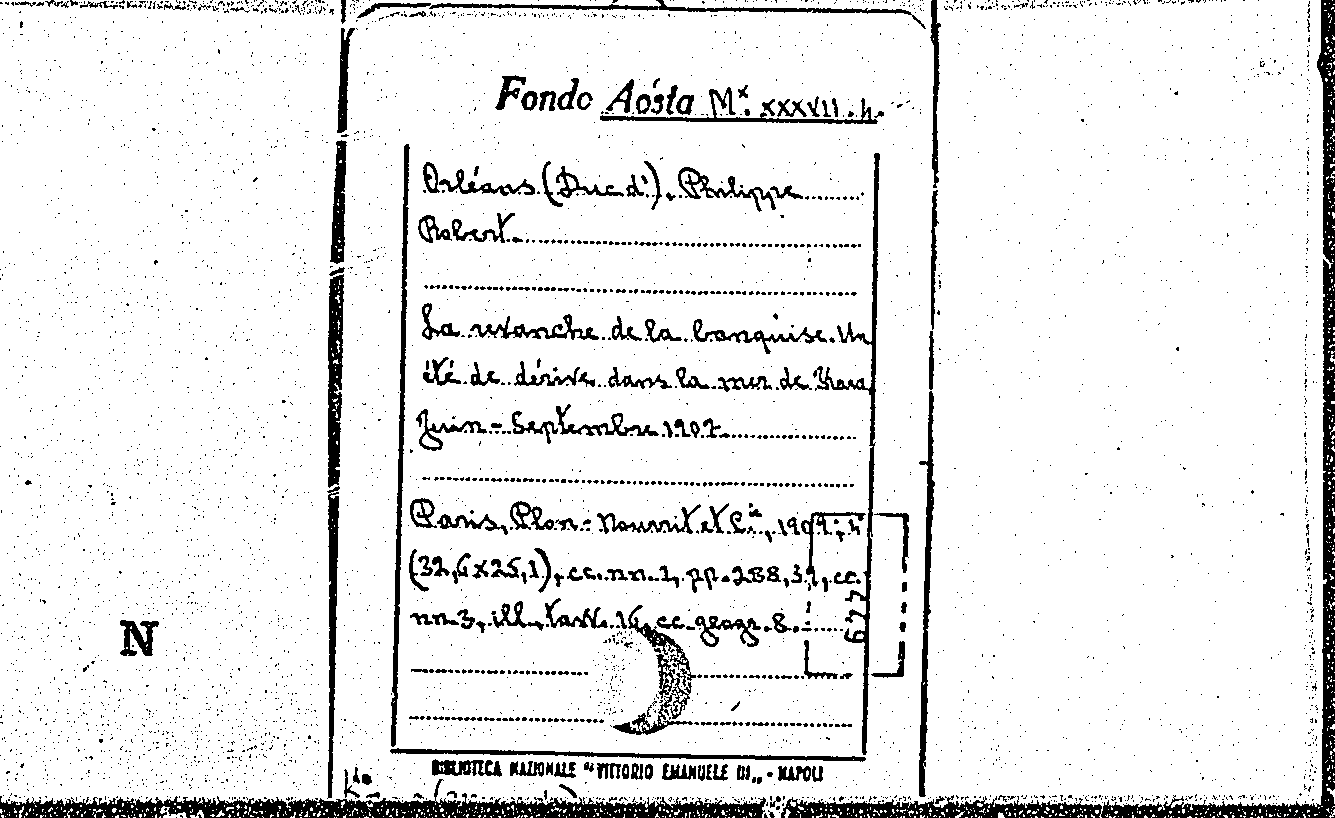 Fondo Aosta Mˣ. XXXVII. h.
Orléans (Duc d'). Philippe
Robert.
La revanche de la banquise. Un
été de dérive dans la mer de Kara
Juin - Septembre 1907.
Paris, Plon-Nourrit et C.ie, 1909; 4°
(32,6x25,1), cc. nn. 1, pp. 288, 31, cc.
nn 3, ill., tavv. 16, cc. geogr. 8.
N
BIBLIOTECA NAZIONALE "VITTORIO EMANUELE III„ - NAPOLI